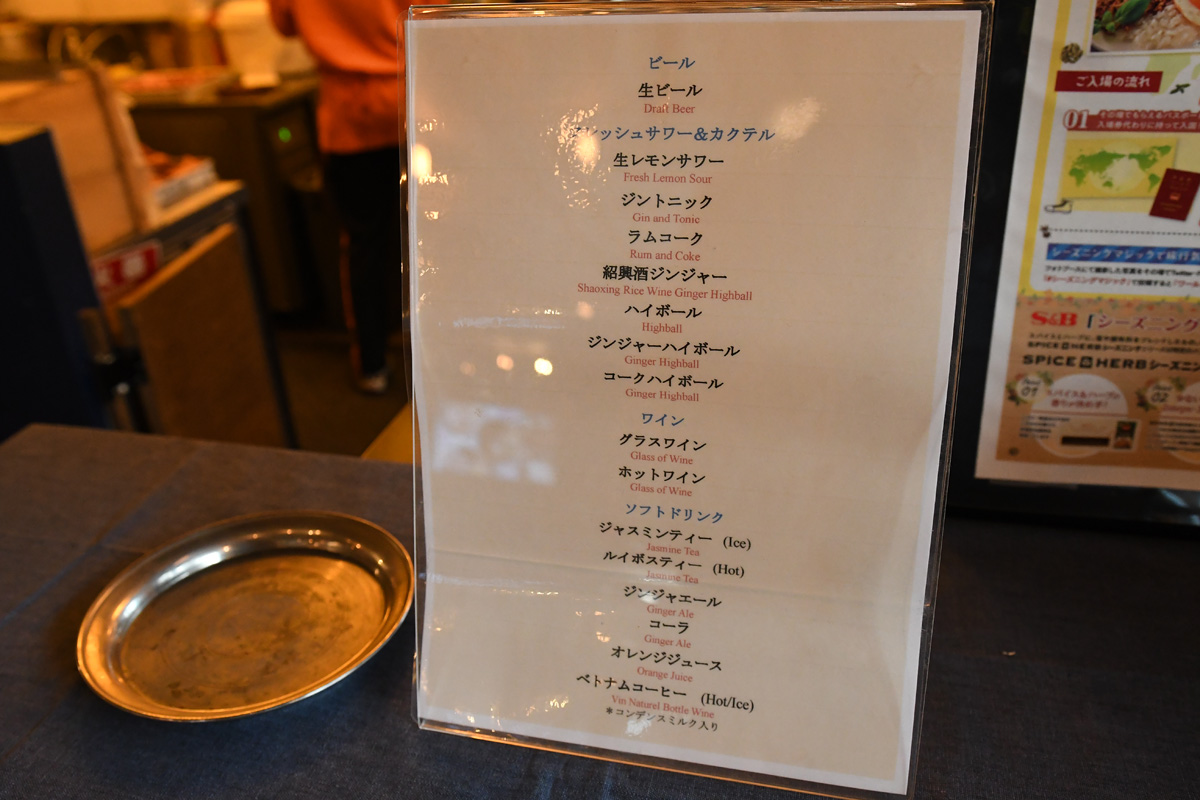 ビール
生ビール
Draft Beer
レッシュサワー&カクテル
生レモンサワー
Fresh Lemon Sour
ジントニック
Gin and Tonic
ラムコーク
Rum and Coke
紹興酒ジンジャー
Shaoxing Rice Wine Ginger Highball
ハイボール
Highball
ジンジャーハイボール
Ginger Highball
コークハイボール
Ginger Highball
ワイン
グラスワイン
Glass of Wine
ホットワイン
Glass of Wine
ソフトドリンク
ジャスミンティー (Ice)
Jasmine Tea
ルイボスティー (Hot)
Jasmine Tea
ジンジャエール
Ginger Ale
コーラ
Ginger Ale
オレンジジュース
Orange Juice
ベトナムコーヒー (Hot/Ice)
Vin Naturel Bottle Wine
*コンデンスミルク入り
ご入場の流れ
01
シーズニングマジックで旅行気
S&B「シーズニング
SPICE & HERBシーズニン
01
スパイス&ハーブの
02